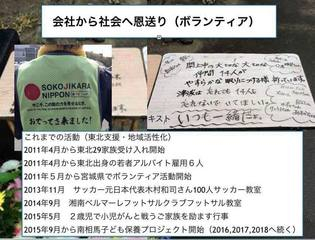 会社から社会へ恩送り（ボランティア）
SOKOJIKARA
NIPPON
おでって
閖上中の大切な大切な
仲間14人が
津波は忘れても14人を
忘れないでいてほしい。
いつも一緒だよ。
キスト
これまでの活動（東北支援・地域活性化）
2011年4月から東北29家族受け入れ開始
2011年4月から東北出身の若者アルバイト雇用６人
2011年５月から宮城県でボランティア活動開始
2013年11月　サッカー元日本代表木村和司さん100人サッカー教室
2014年9月　湘南ベルマーレフットサルクラブフットサル教室
2015年5月　２歳児で小児がんと戦うご家族を励ます行事
2015年9月から南相馬子ども保養プロジェクト開始（2016,2017,2018へ続く）